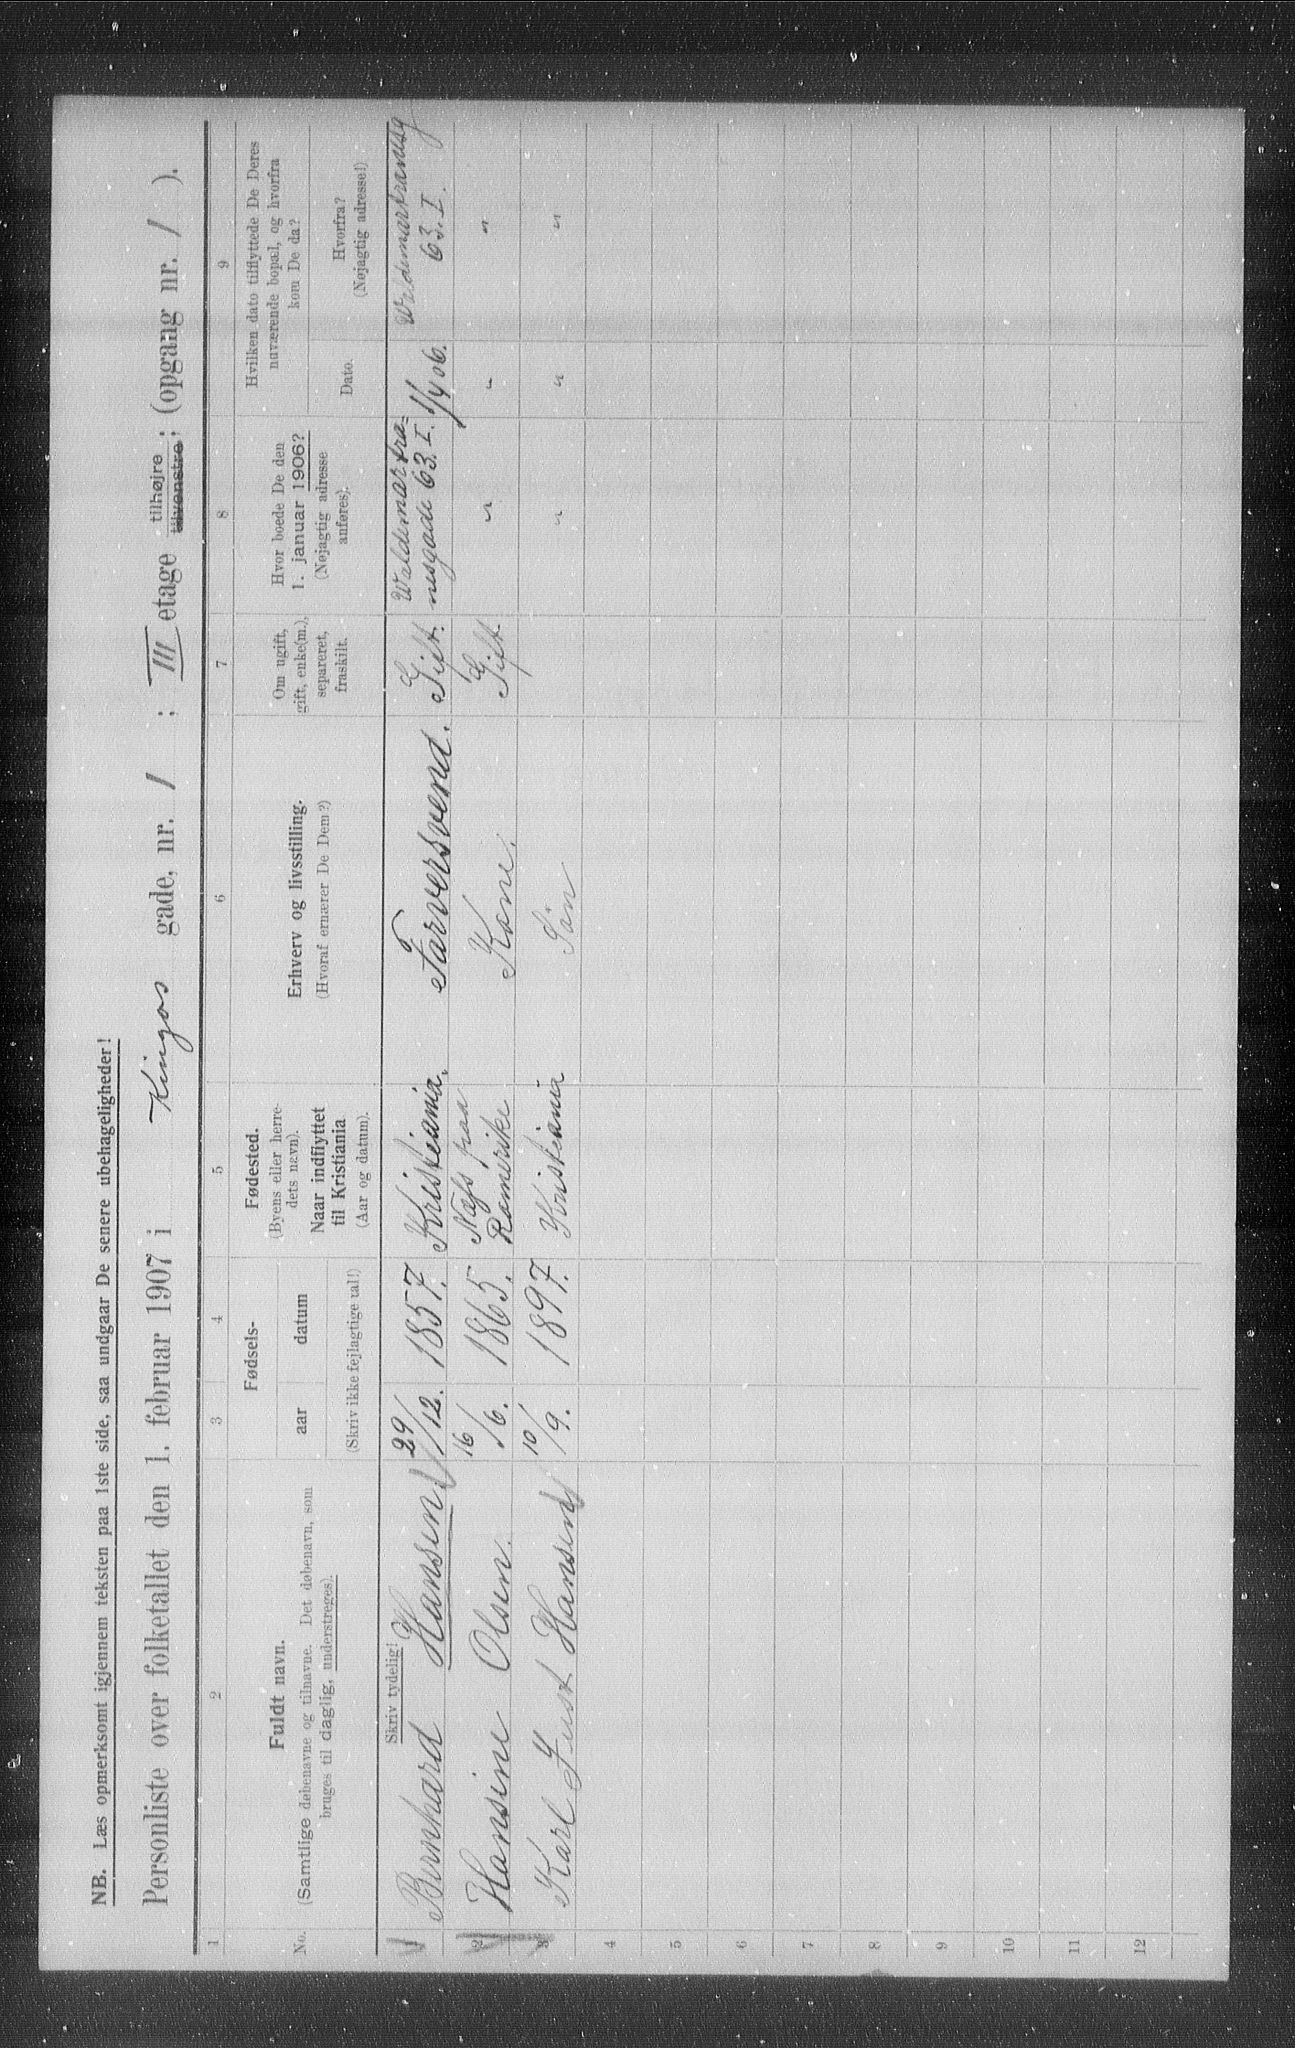 NB. Læs opmerksomt igjennem teksten paa 1ste side, saa undgaar De senere ubehageligheder!
Personliste over folketallet den 1. februar 1907 i Kingos gade, nr. 1 ; III etage tilhøjre ; (opgang nr. 1 ).
tilvenstre
1 2 3 4 5 6 7 8 9
No.
Fuldt navn.
(Samtlige døbenavne og tilnavne. Det døbenavn, som
bruges til daglig, understreges).
Fødsels-
aar datum
(Skriv ikke fejlagtige tal!)
Fødested.
(Byens eller herre-
dets navn).
Naar indflyttet
til Kristiania
(Aar og datum).
Erhverv og livsstilling.
(Hvoraf ernærer De Dem?)
Om ugift,
gift, enke(m.),
separeret,
fraskilt.
Hvor boede De den
1. januar 1906?
(Nøjagtig adresse
anføres).
Hvilken dato tilflyttede De Deres
nuværende bopæl, og hvorfra
kom De da?
Dato.
Hvorfra?
(Nøjagtig adresse!)
Skriv tydelig!
Bernhard Hansen 29/12. 1857. Kristiania. Farversvend. Gift. Waldemartra=
nesgade 63. I. 1/4 06. Waldemartranesg
63. I.
2 Hansine Olsen. 16/6. 1865. Næs paa
Romerike Kone. Gift. " " "
3 Karl Just Hansen 10/9. 1897. Kristiania Søn " " "
4
5
6
7
8
9
10
11
12